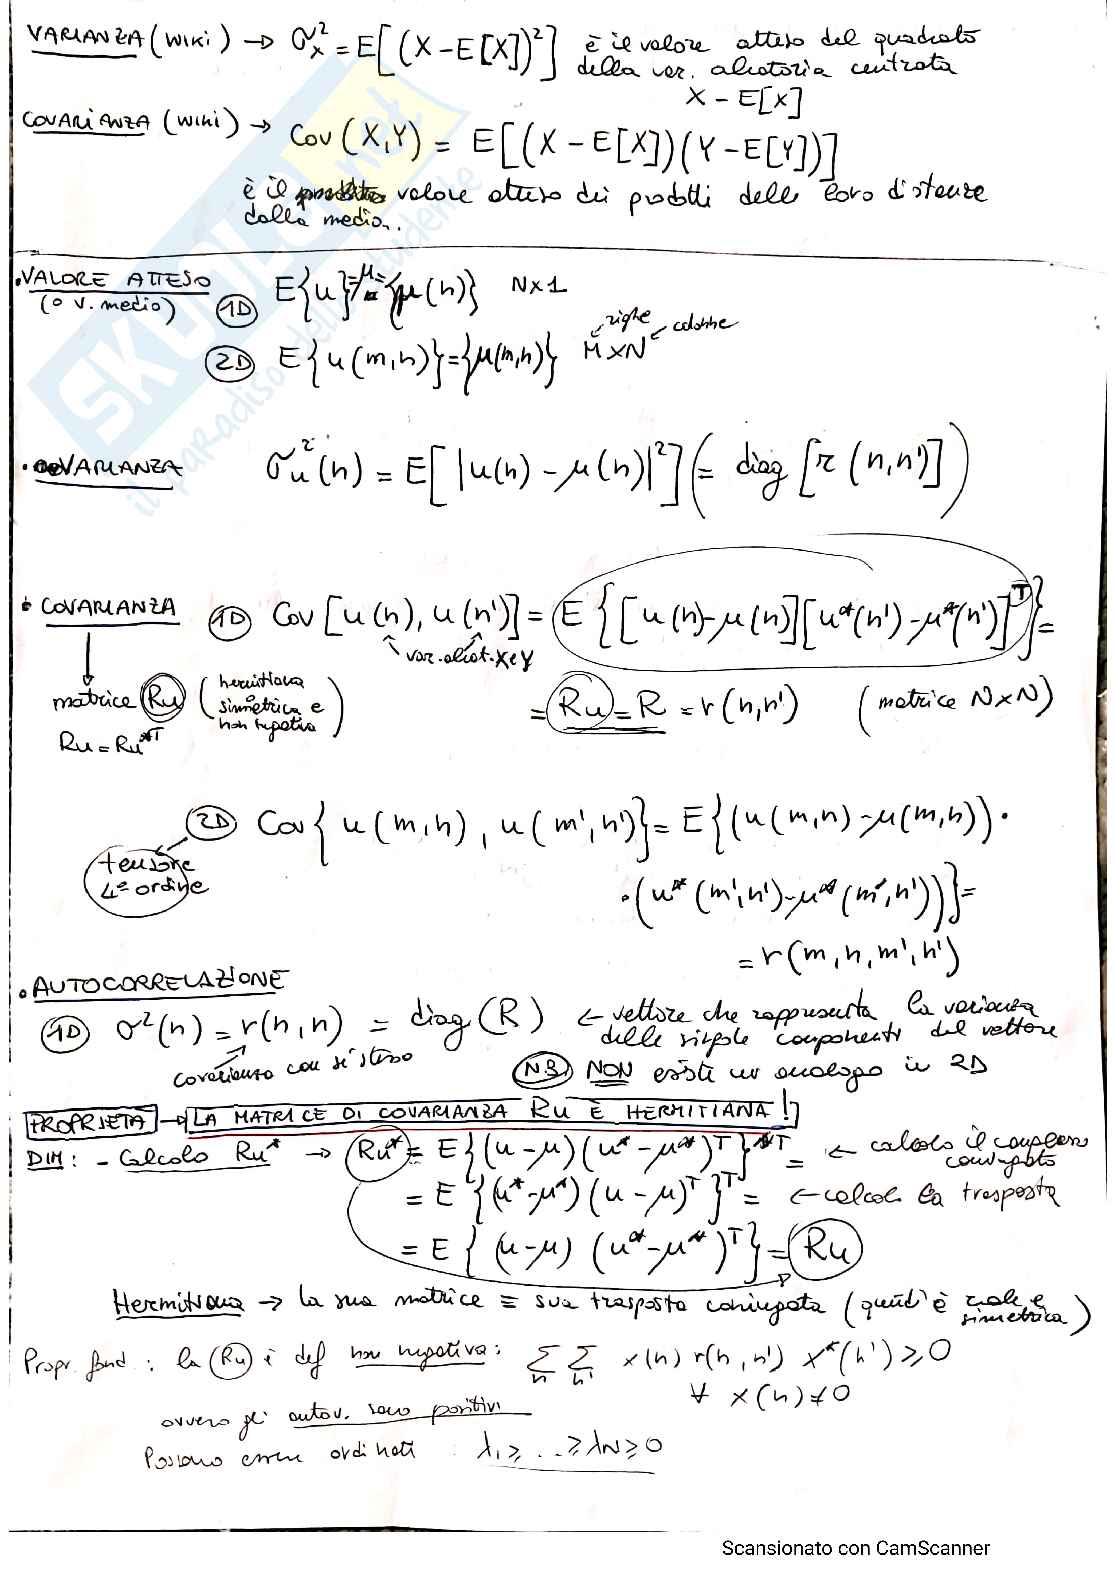 VARIANZA (WIKI) → σx² = E[(X − E[X])²] è il valore atteso del quadrato
della var. aleatoria centrata
X − E[X]
COVARIANZA (WIKI) → Cov(X,Y) = E[(X − E[X])(Y − E[Y])]
è il valore atteso dei prodotti delle loro distanze
dalla media..
.VALORE ATTESO
(o v. medio)
1D E{u} = μ = {μ(n)} N×1
righe colonne
2D E{u(m,n)} = {μ(m,n)} M×N
. VARIANZA σu²(n) = E[|u(n) − μ(n)|²] (= diag [r(n,n')])
• COVARIANZA 1D Cov[u(n), u(n')] = E{[u(n)−μ(n)][u*(n')−μ*(n')]ᵀ} =
var. aleat. X e Y
matrice Ru (hermitiana simmetrica e non negativa)
= Ru = R = r(n,n') (matrice N×N)
Ru = Ru*ᵀ
2D Cov{u(m,n), u(m',n')} = E{(u(m,n) − μ(m,n)) ·
tensore
4° ordine
·(u*(m',n') − μ*(m',n'))} =
= r(m,n,m',n')
. AUTOCORRELAZIONE
1D σ²(n) = r(n,n) = diag(R) ← vettore che rappresenta la varianza
delle singole componenti del vettore
covarianza con sé stesso
NB NON esiste un analogo in 2D
PROPRIETÀ → LA MATRICE DI COVARIANZA Ru È HERMITIANA!
DIM: - Calcolo Ru* → Ru* = E{(u−μ)(u*−μ*)ᵀ}*ᵀ = ← calcolo il complesso
coniugato
= E{(u*−μ*)(u−μ)ᵀ}ᵀ = ← calcolo la trasposta
= E{(u−μ)(u*−μ*)ᵀ} = Ru
Hermitiana → la sua matrice ≡ sua trasposta coniugata (quindi è reale e
simmetrica)
Propr. fond.: la Ru è def non negativa: Σn Σn' x(n) r(n,n') x*(n') ≥ 0
∀ x(n) ≠ 0
ovvero gli autov. sono positivi
Possono essere ordinati λ1 ≥ ... ≥ λN ≥ 0
SKUOLA.net
il paradiso dello studente
Scansionato con CamScanner